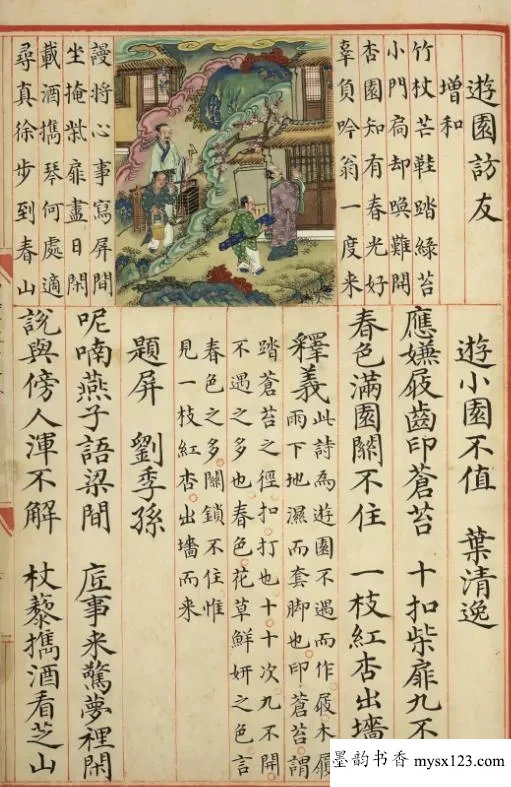 遊園訪友
增和
竹杖芒鞋踏綠苔
小門扃却喚難開
杏園知有春光好
辜負吟翁一度来
謾將心事寫屏間
坐掩柴扉盡日閑
載酒擕琴何處適
尋真徐步到春山
遊小園不值 葉清逸
應嫌屐齒印蒼苔 十扣柴扉九不
春色滿園關不住 一枝紅杏出墻
釋義 此詩為遊園不遇而作屐木屨
雨下地濕而套脚也印蒼苔謂
踏蒼苔之徑扣打也十十次九不開
不遇之多也春色花草鮮妍之色言
春色之多關鎖不住惟
見一枝紅杏出墻而来
題屏 劉季孫
呢喃燕子語梁間 底事来驚夢裡閑
說與傍人渾不解 杖藜擕酒看芝山
墨韵书香 mysx123.com